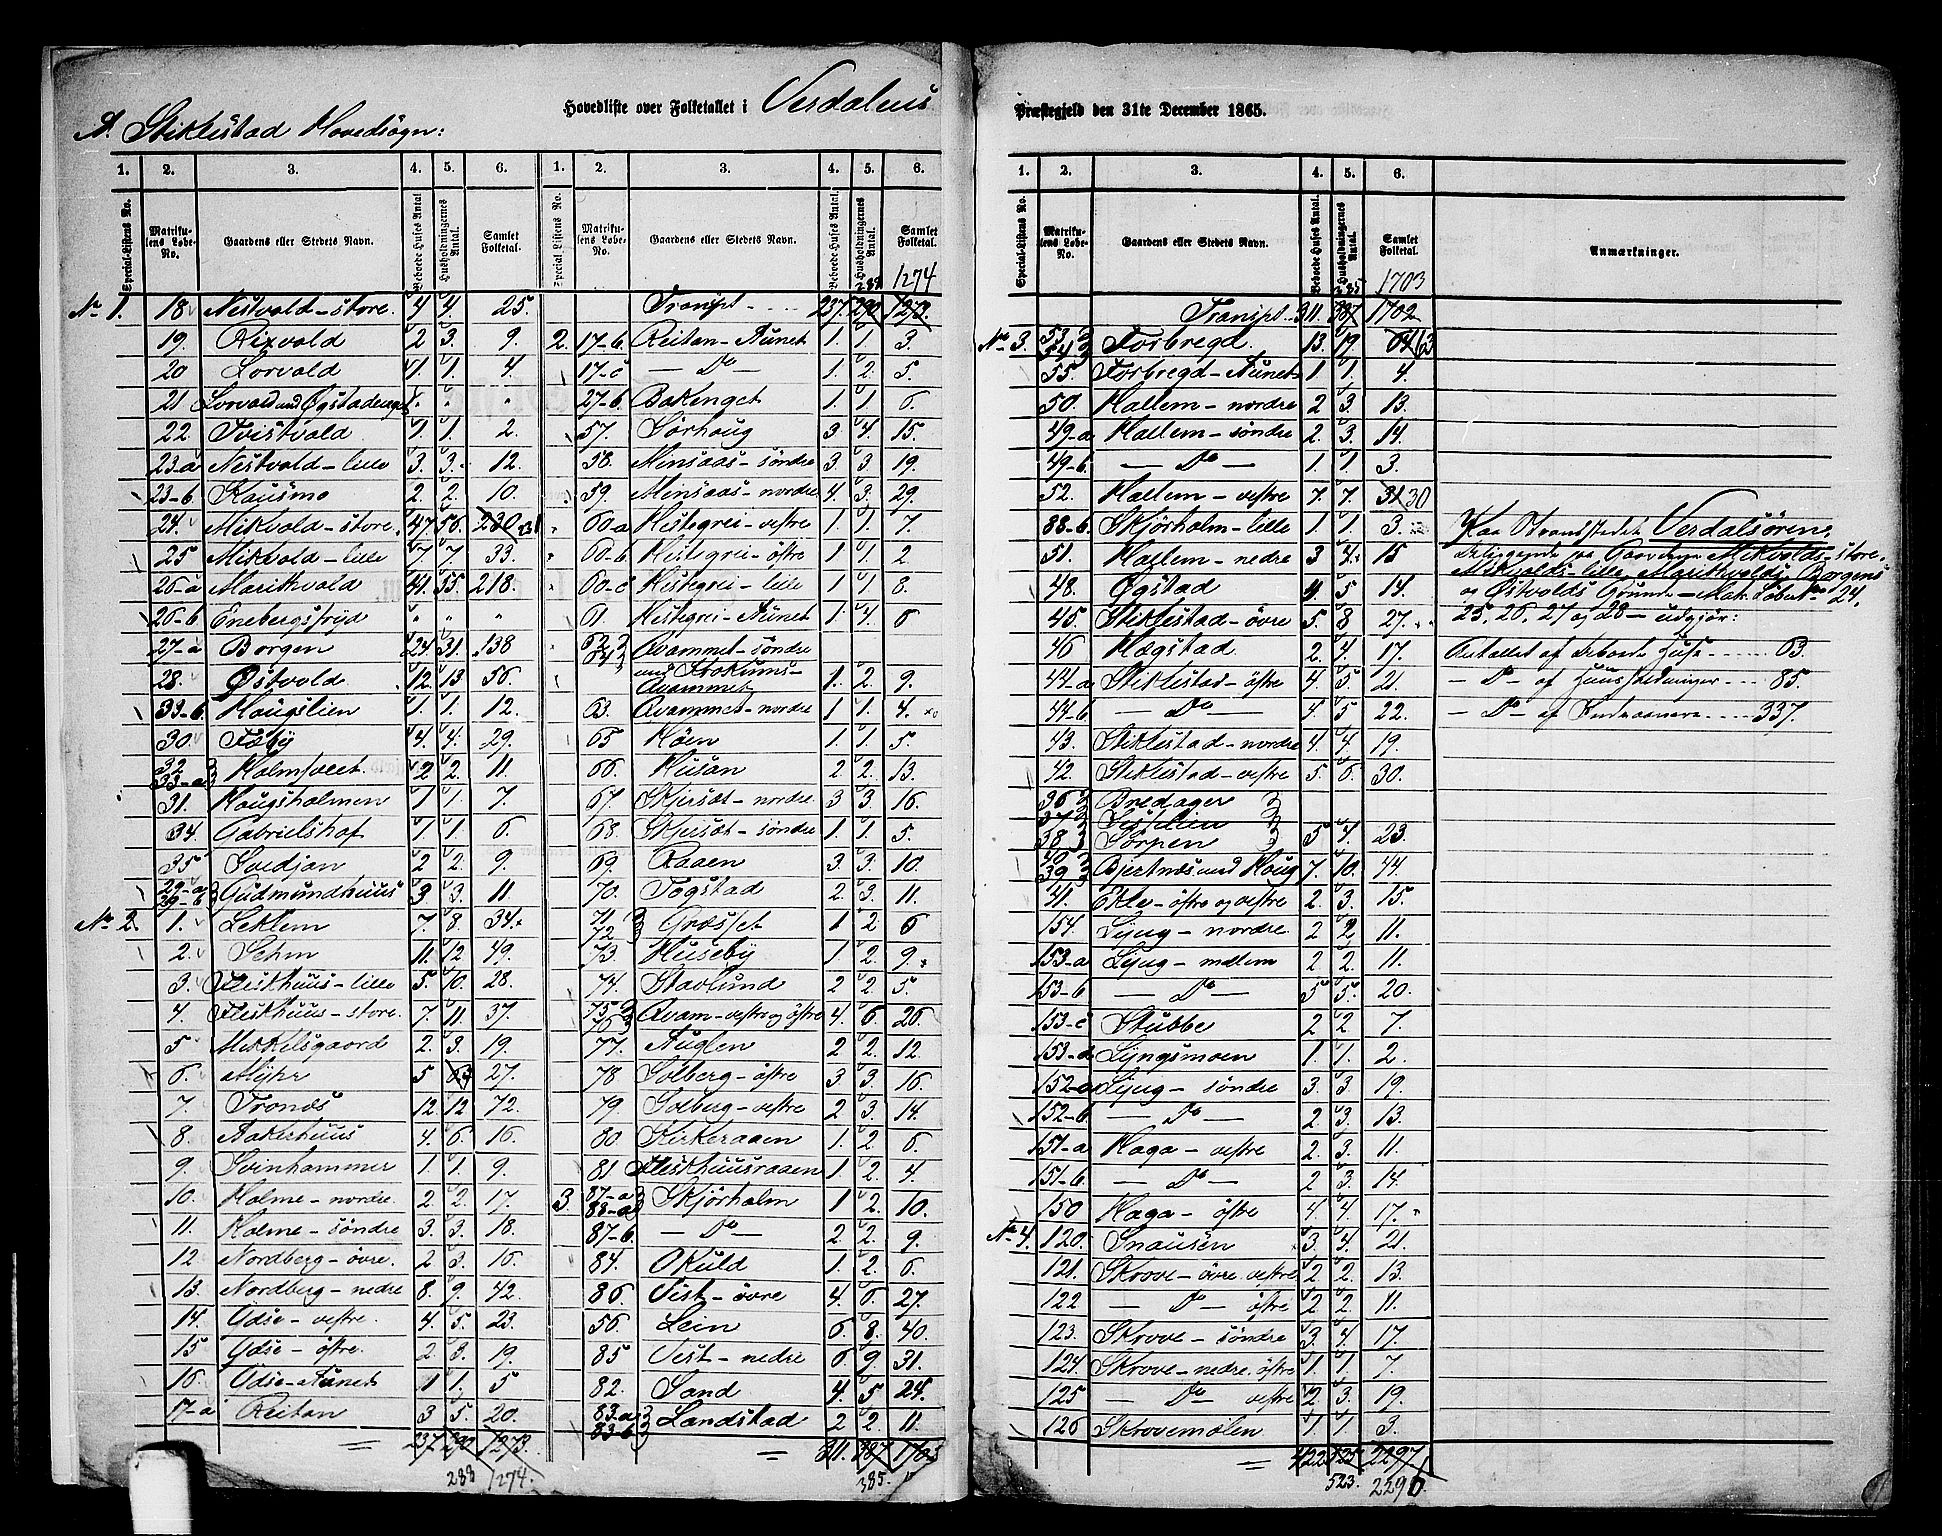 Hovedliste over Folketallet i Verdalens
Præstegjeld den 31te December 1865.
A. Stiklestad Hovedsogn:
1. 2. 3. 4. 5. 6. 1. 2. 3. 4. 5. 6.
Special-Listens No. Matrikulens Løbe-No. Gaardens eller Stedets Navn. Beboede Huses Antal Husholdningernes Antal. Samlet Folketal. Special Listens No. Matrikulens Løbe-No. Gaardens eller Stedets Navn. Beboede Huses Antal. Husholdningernes Antal. Samlet Folketal.
No 1. 18 Nestvold - store. 4. 4. 25.
19. Rixvold 2 3. 9.
20 Lorvald 1. 1. 4.
21 Lorvald und Øgstadenget " " "
22. Tvistvold 1. 1. 2.
23-a Nestvold - lille 3. 3. 12.
23-b Kausmo 2. 2. 10.
24. Mikvold - store. 47. 56. 230 231
25 Mikvold - lille 7. 7 33.
26-a Marikvold 41. 55. 218.
26-b Enebergsfryd " " "
27-a Borgen 24. 31. 138
28. Østvold 12. 13 56.
33-b Haugslien 1. 1. 12.
30. Fæby 4. 4. 29.
32 33-a Holmsveet 2 2. 11.
31. Haugsholmen 1 1. 7.
34. Gabrielshof 1. 1. 6.
35 Svedjan 2 2. 9.
29-a 29-b Gudmundhuus 3 3. 11
No 2. 1. Leklem 7. 8. 34.
2. Sehm 11. 12 49.
3. Fleskhuus - lille 5. 10. 28.
4. Fleskhuus - store. 7. 11. 37.
5 Mikkelsgaard 2. 3. 19.
6. Myhr 5 27.
7. Tronæs 12. 12 72.
8. Aakerhuus 4. 6. 16.
9. Svinhammer 1. 1. 9.
10. Holme - nordre. 2. 2. 17.
11. Holme - söndre 3. 3. 18.
12. Nordberg - övre. 2 3. 16.
13. Nordberg - nedre 8. 9. 42.
14. Ydse - vestre. 4. 5. 23.
15 Ydse - östre. 2. 3. 19.
16. Ydse - Aunet 1 1. 5
17-a Reitan 3 5. 20.
237 290 1273.
288 1274.
288 1274
Transpt. 237. 290 1273.
2. 17-b Reitan - Aunet 1. 1. 3.
17-c - Do - 1. 2. 5.
27-b Bakenget 1. 1. 6.
57. Sørhaug 3. 4. 15.
58. Minsaas - søndre 3. 3. 19.
59. Minsaas - nordre. 4. 3. 29.
60-a Hestegrei - vestre 1. 1. 7.
60-b Hestegrei - östre 1. 1. 2.
60-c Hestegrei - lille 1. 1 8.
61. Hestegrei - Aunet 1. 4. 6
62 64 Kvammet - söndre
und Krokums-
Kvammet 1. 2. 9.
63. Kvammet - nordre 1 1. 4.
65 Høen 1. 1. 5.
66. Husan 2 2. 13.
67. Skjersæt - nordre. 3 3. 16.
68. Skjersæt - söndre 1 1. 5.
69. Raaen 3 3. 10.
70. Togstad 2. 3. 11.
71. 72. Græsset 1 2 6
73. Huseby 1 2. 9.
74. Stavlund 2 2. 5.
75 76 Kvam - vestre og östre 4. 6. 26.
77. Auglen 2 2. 12.
78 Solberg - östre 3. 3. 16.
79. Solberg - vestre 2 3. 14.
80. Kirkeraaen 1. 2. 6.
81 Fleskhuusraaen 1 2. 4.
3. 87-a 88-a Skjørholm 1 2. 10.
87-b - Do - 2. 2. 9.
84. Okuld 1. 2. 6.
86. Vist - övre 4. 6. 27.
56. Lein 6. 8. 40.
85 Vist - nedre 6 9. 31.
82. Sand 4. 5 24.
83-a 83-b Landstad 2 2. 11.
311. 387 1703
385.
1. 2. 3. 4. 5. 6.
Special-Listens No. Matrikulens Løbe-No. Gaardens eller Stedets Navn. Beboede Huses Antal. Husholdningernes Antal. Samlet Folketal. Anmærkninger.
385 1703
Transpt. 311. 387 1702
No 3. 53. 54 Forbregd. 13. 17 64 63
55. Forbregd - Aunet 1 1. 4.
50. Hallem - nordre 2 3. 13.
49-a Hallem - söndre 2. 3. 14.
49-b - Do - 1. 1. 3.
52. Hallem - vestre 7. 7. 31 30
88-b Skjörholm - lille 1 1. 3.
51. Hallem - nedre 3 4. 15
48. Øgstad 4 5 14.
45. Stiklestad - övre 5. 8 27.
46 Hægstad 2. 4 17.
44-a Stiklestad - östre 4. 5. 21.
44-b - Do - 4 5 22.
43. Stiklestad - nordre 4. 4. 19.
42. Stiklestad - vestre 5. 6. 30.
36 Bredager
37 Sisselien
38 Sörpen 5 4. 23.
40. 39 Bjertnæs und Haug 7. 10. 44
41. Ekle - östre og vestre 2. 3. 15.
154. Ljug - nordre. 2 2 11.
153-a Ljug - mellem 2 2. 11.
153-b - Do - 5 5. 20.
153-c Stubbe 2 2 7.
153-d Ljngsmoen 1. 1. 2.
152-a Ljug - söndre 3. 3 19.
152-b - Do - 2 3. 13.
151-a Haga - vestre 2. 3. 11.
151-b - Do - 2 3. 14.
150 Haga - östre 4 4. 17.
No 4. 120. Snausen 3. 4. 21.
121. Skrove - övre vestre 2 2. 13.
122 - Do - östre 2 2. 11.
123. Skrove - söndre 3 4. 17.
124. Skrove - nedre. östre 1. 1 7.
125 - Do - vestre 2. 3. 19.
126 Skrovemölen 1. 1. 3.
422 525 2297
523. 2296.
Paa Strandstedet Verdalsøren,
beliggende paa Gaardene Mikvolds - store,
Mikvolds - lille, Marikvolds, Borgens
og Østvolds Grunde - Matr. Løbe No 24.
25, 26, 27 og 28 - udgjør:
Antallet af beboede Huse ...... 63.
- Do - af Huusholdninger ... 85.
- Do - af ..... 337.